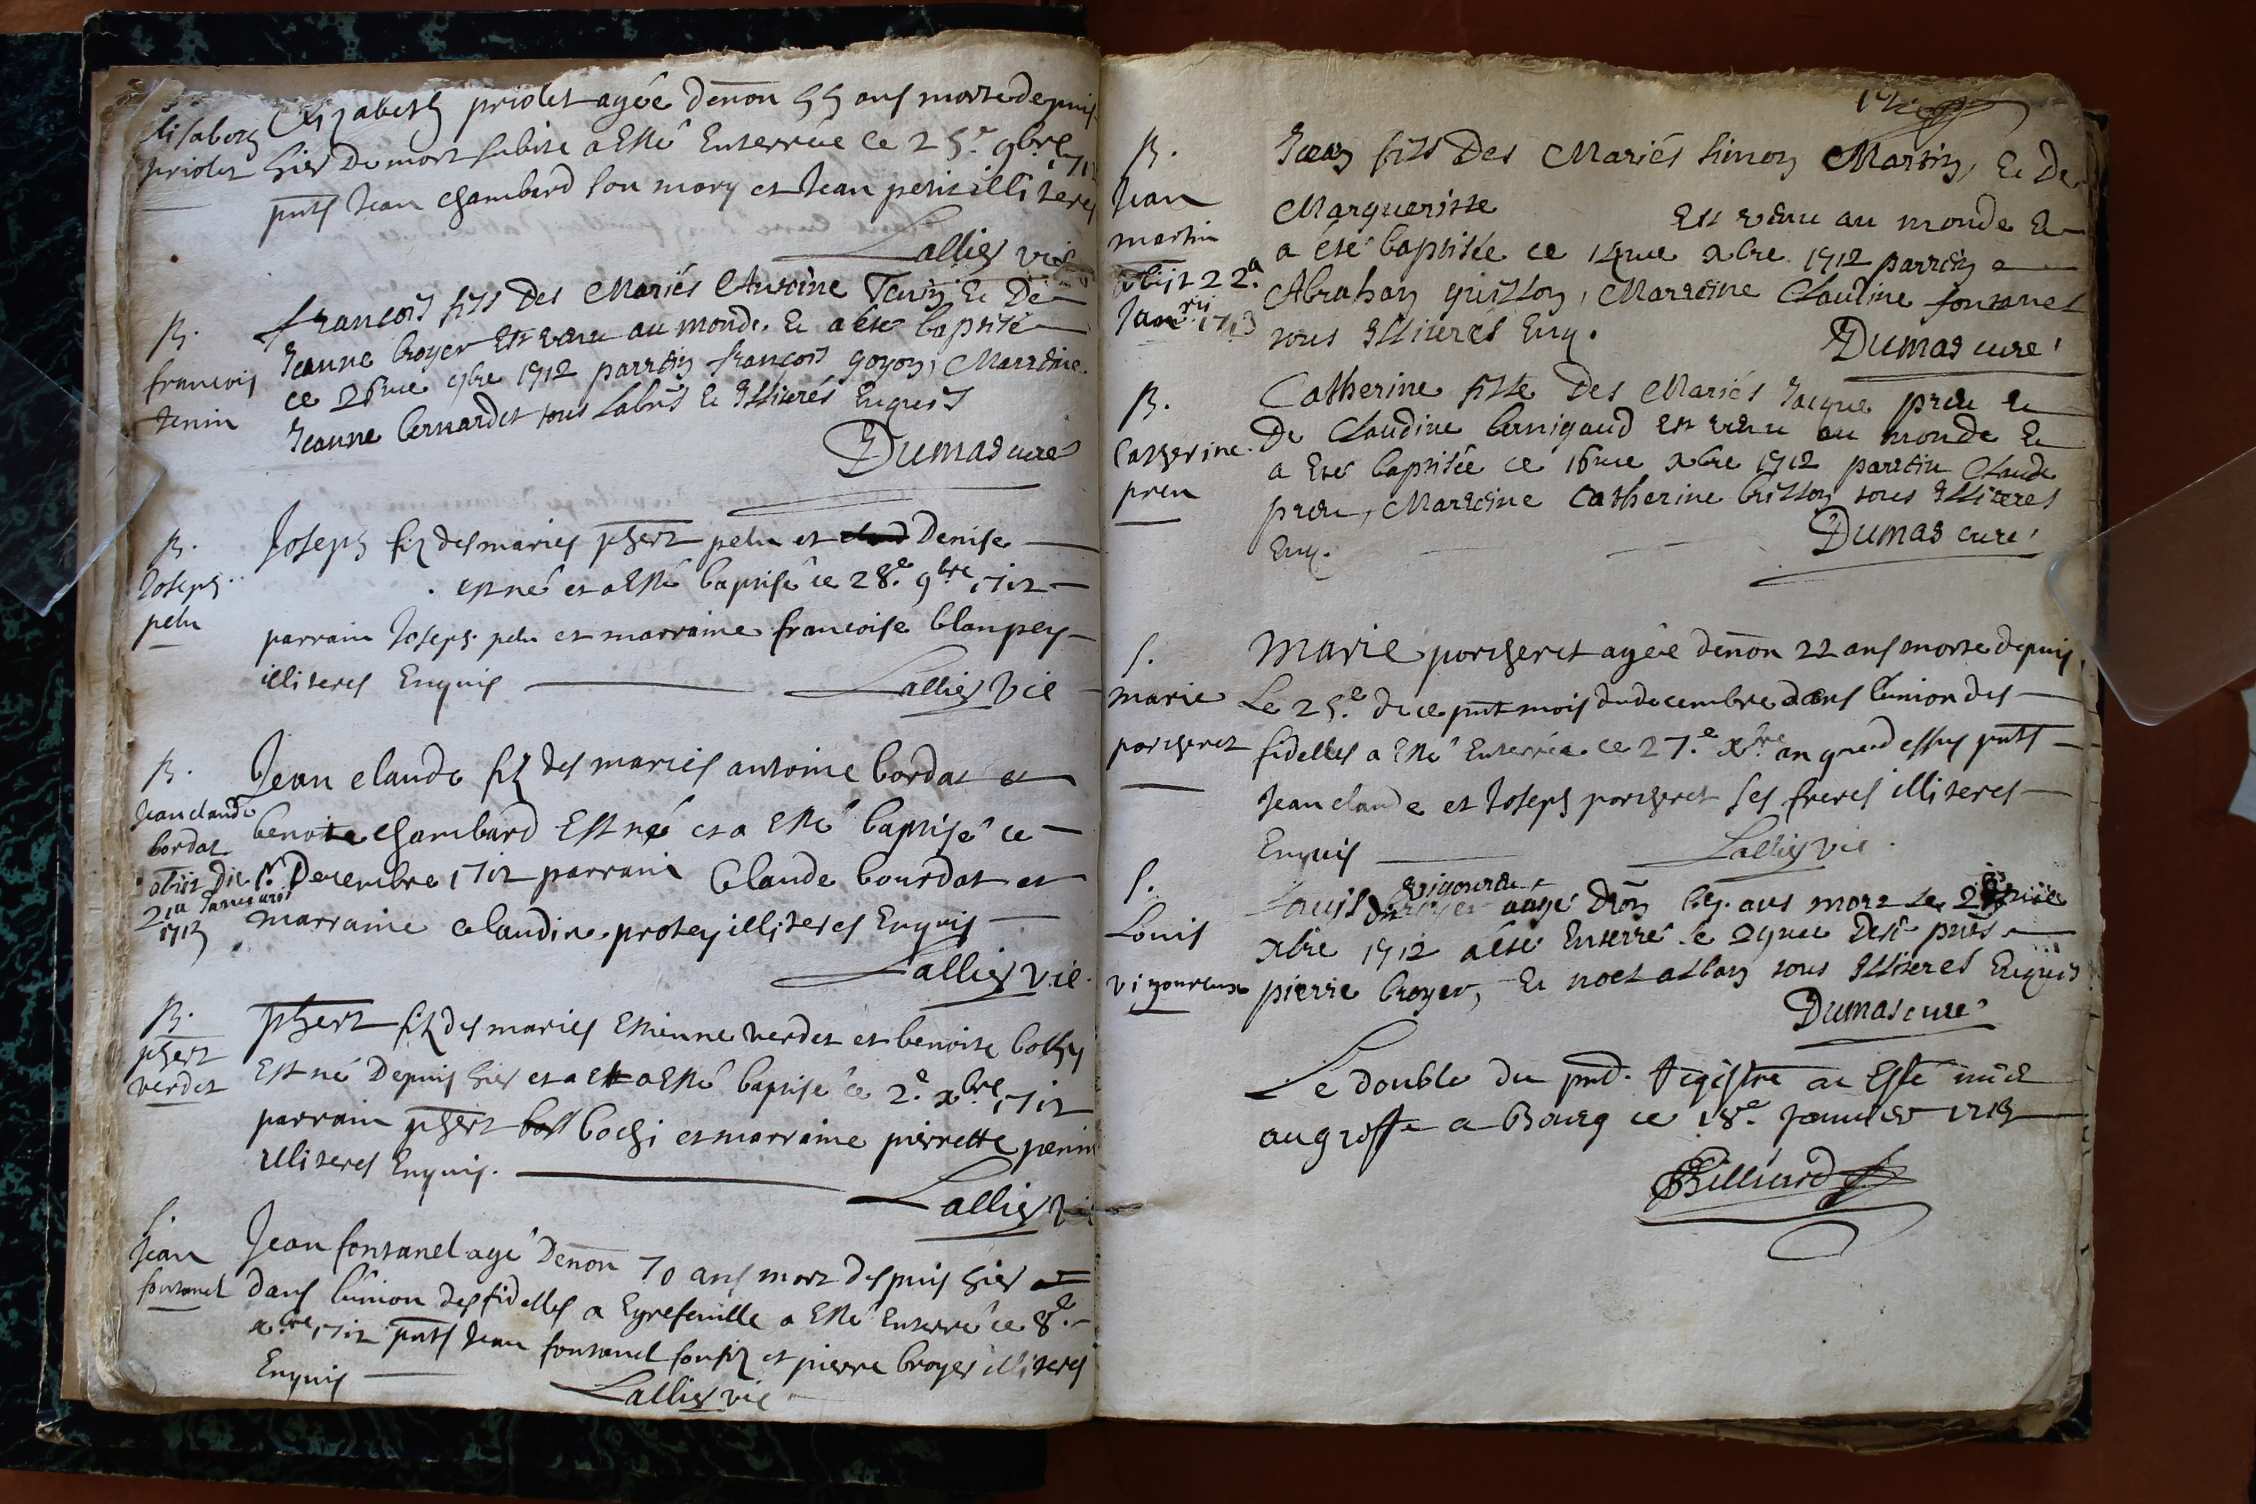 Elisabeth
priolet
Elizabeth priolet agée denõn 55 ans morte depuis
hier De mort subite a Esté Enterrée ce 25.e 9bre 1712
pnts Jean chambard son mary et Jean petit illiteres
Lallier vic
B.
francois
Tenin
francois fils Des Mariés Antoine Tenin Et De
Jeanne broyer Est venu au monde Et a este baptisé
ce 26me 9bre 1712 parrain francois goyon, Marraine
Jeanne bernardet tous Et Illiterés Enquis
Dumas curé
B.
Joseph
pelu
Joseph fiz des mariés phert pelu et Denise
est né et a Esté baptisé ce 28.e 9bre 1712
parrain Joseph pelu et marraine francoise blanpey
illiteres Enquis Lallier Vic
B.
Jean claude
bordat
obiit Die
21a Januarii
1713
Jean claude fiz des mariés antoine bordat et
benoite chambard Est né et a Esté baptisé ce
1.r Decembre 1712 parrain Claude bourdat et
marraine claudine protey illiteres Enquis
Lallier vic.
B.
phert
verdet
phert fiz des mariés Estienne verdet et benoite bochy
Est né Depuis hier et a Esté baptisé ce 2.e xbre 1712
parrain phert bochi et marraine pierrette penin
illiteres Enquis.
Lallier vic
S.
Jean
fontanel
Jean fontanel agé Denõn 70 ans mort despuis hier
dans l'union des fidelles a Eyrefeuille a Esté Enterré ce 8.e
xbre 1712 pnts Jean fontanel son fiz et pierre broyer illiteres
Enquis
Lallier vic
B.
Jean
martin
obiit 22.a
Janrii 1713
Jean fils Des Mariés Simon Martin, Et De
Margueritte Est venu au monde Et
a été baptisée ce 14me xbre 1712 parrain
Abraham grillon, Marraine Claudine fontanel
tous Illiterés Enq.
Dumas curé
B.
Catherine
preu
Catherine fille Des Mariés Jacque preu Et
De Claudine bernigaud Est venu au monde Et
a Eté baptisée ce 16me xbre 1712 parrain Claude
preu, Marraine Catherine brillon tous Illiteres
Enq.
Dumas curé
S.
marie
porcheret
Marie porcheret agée denõn 22 ans morte depuis
Le 25.e de ce pnt mois du decembre dans l'union des
fidelles a Esté Enterrée ce 27.e xbre an que dessus pnts
Jean claude et Joseph porcheret ses freres illiteres
Enquis
Lallier vic
S.
Louis
vigoureux
vigoureux
Louis agé Dnõn ans mort le
xbre 1712 a esté Enterré le 29me Dese pnts
pierre broyer, Et noel alban tous Illiteres Enquis
Dumas curé
Le double du pnd. Registre a Esté mis
au greffe a Bourg ce 18.e Janvier 1713
Billiard